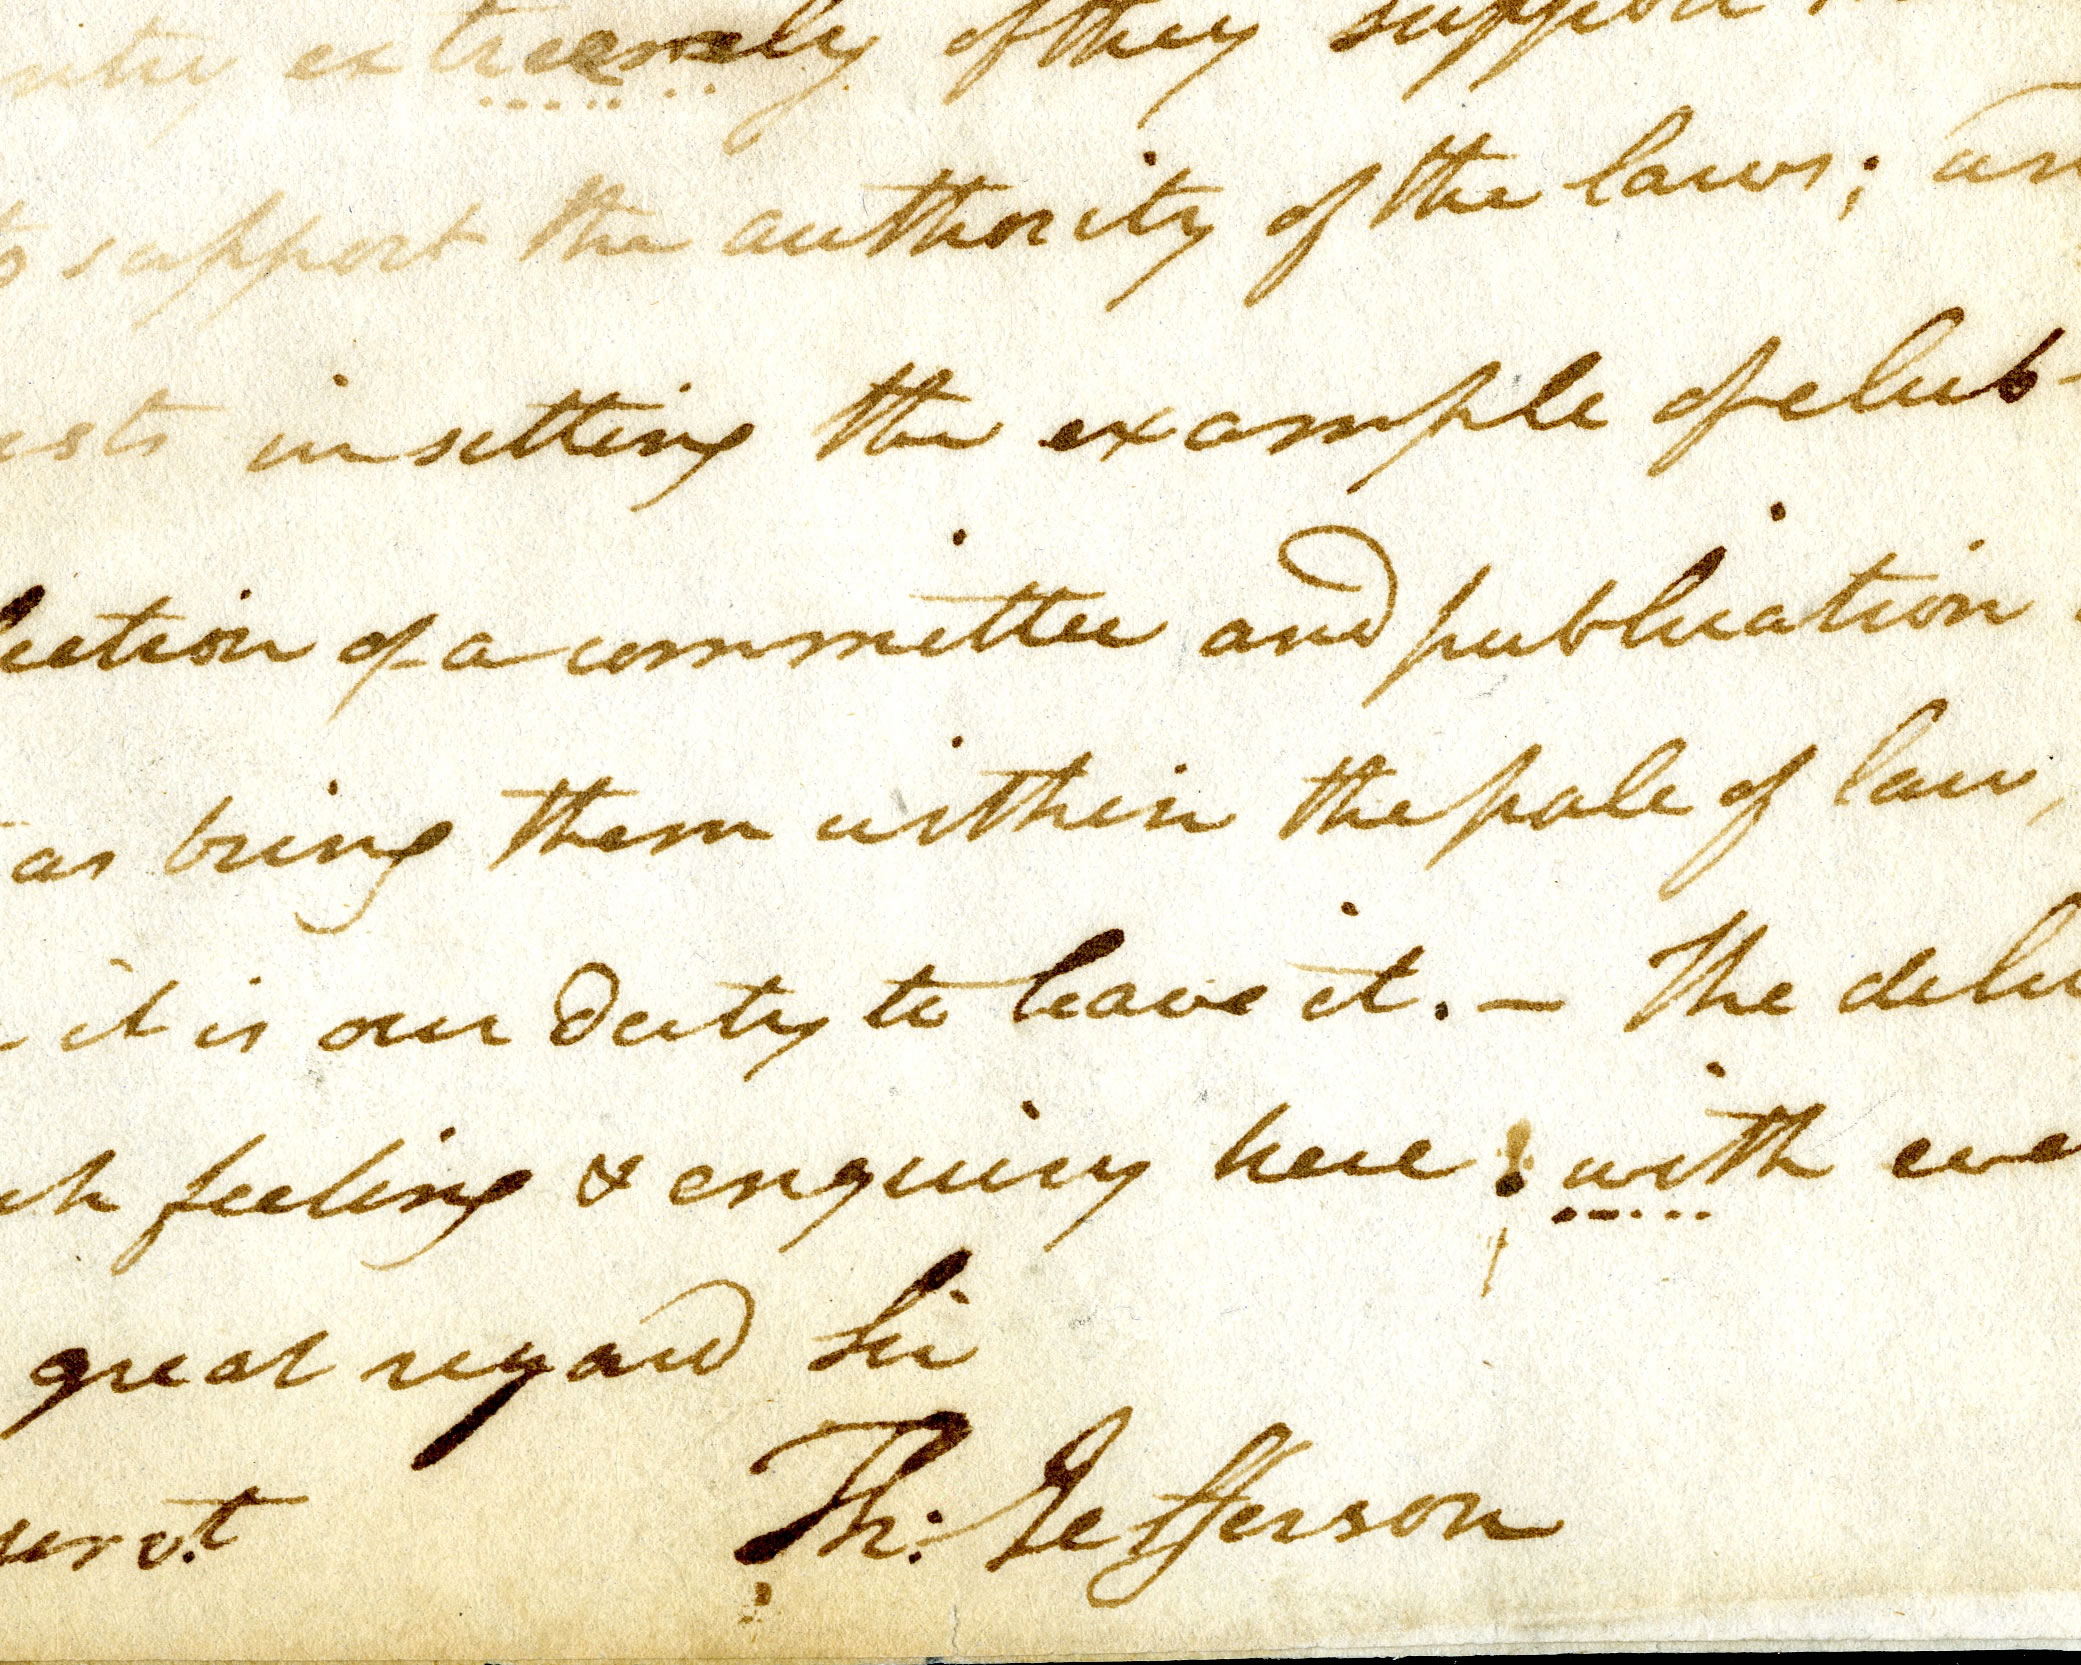 extremely if they support
to support the authority of the laws; an
ests in setting the example of club-
lection of a committee and publication
as bring them within the pale of law,
it is our duty to leave it. — The delu
ch feeling & enquiry here; with eve
great regard Sir
Th: Jefferson